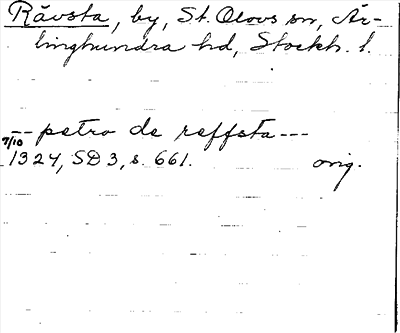 Rävsta, by, St. Olovs sn, Är-
linghundra hd, Stockh. l.
-- petro de reffsta ---
7/10
1324, SD 3, s. 661. orig.